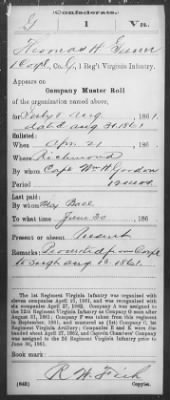 Confederate.
G 1 Va.
Thomas H
1 Corpl, Co. G, 1 Reg't Virginia Infantry.
Appears on
Company Muster Roll
of the organization named above,
for July & Aug, 1861.
dated Aug 31, 1861
Enlisted:
When Apr. 21, 186
Where Richmond
By whom Capt Wm H Gordon
Period
Last paid:
By whom Maj
To what time June 30, 186
Present or absent Present
Remarks: Promoted from Corpl
to Sergt Aug 1861.
The 1st Regiment Virginia Infantry was organized with
eleven companies April 21, 1861, and was reorganized with
six companies April 27, 1862. Company A was assigned to
12th Regiment Virginia Infantry as Company G soon after
August 31, 1861; Company F was taken from this regiment
in September, 1861, and mustered as (1st) Company I, 1st
Regiment Virginia Artillery; Companies E and K were disbanded
about April 27, 1862, and Captain Chamers' Company
was assigned to the 2d Regiment Virginia Infantry prior to
June 30, 1861.
Book mark:
(642)
R. W.
Copyist.